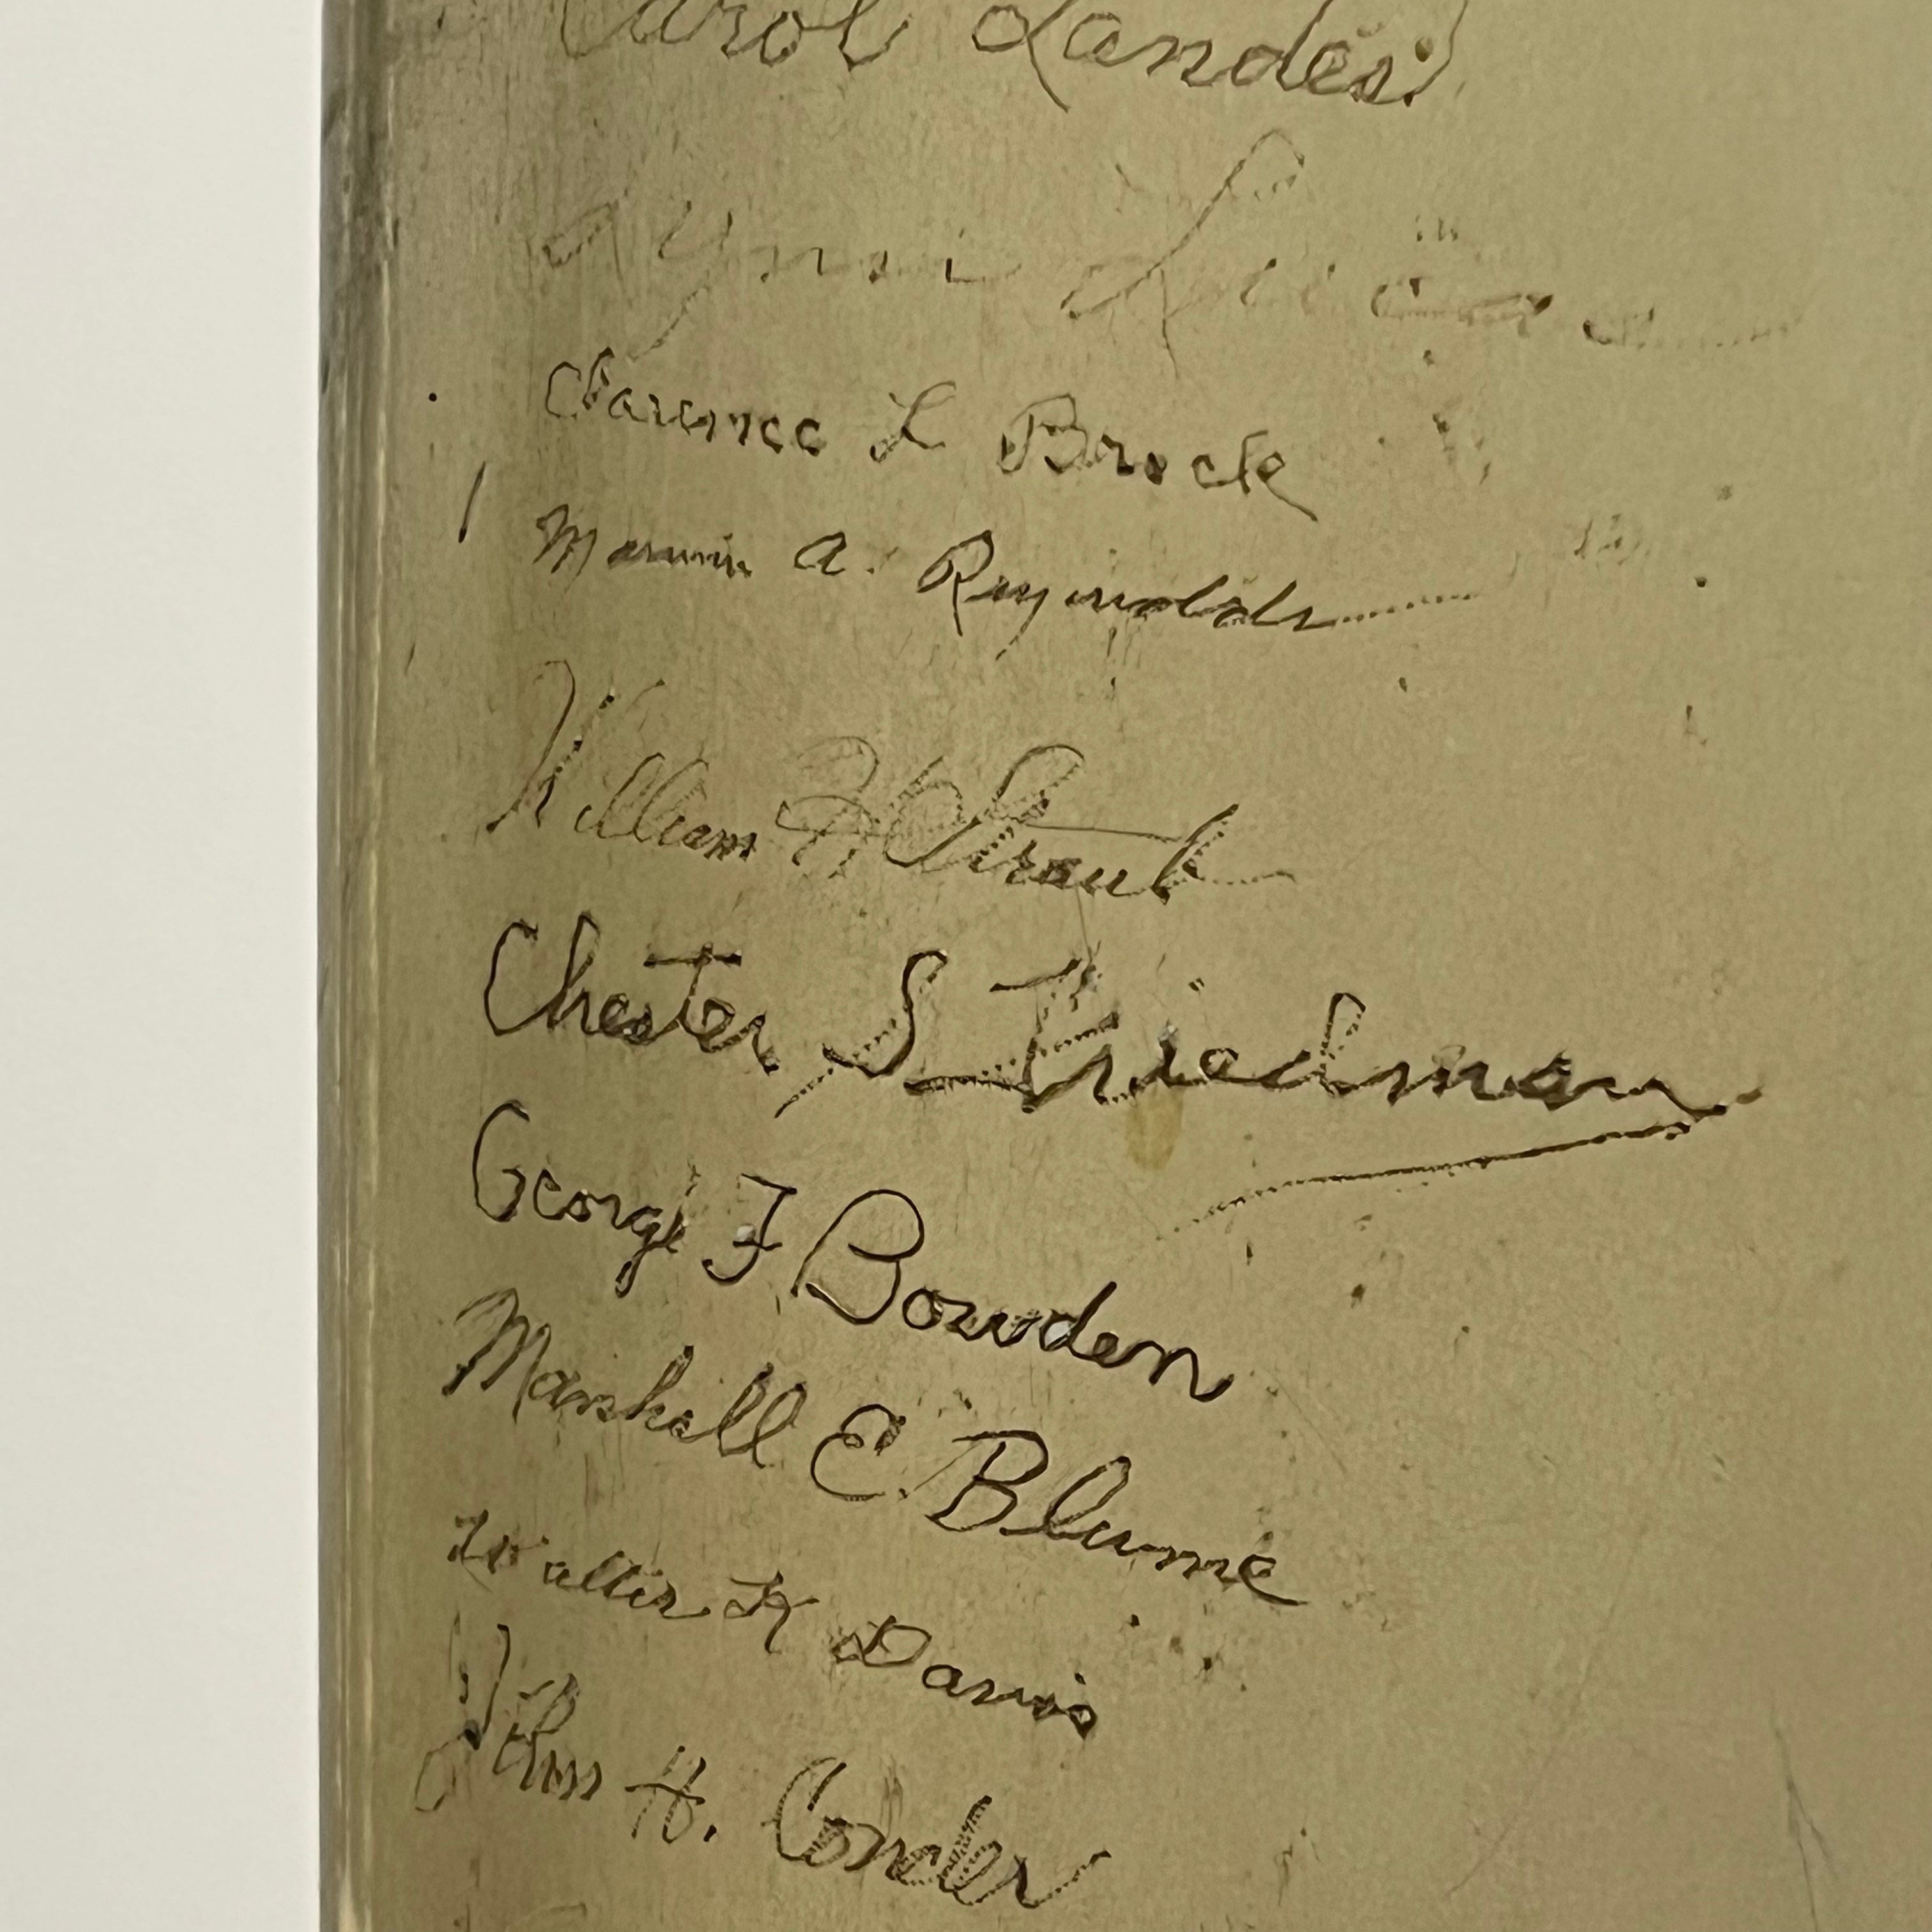 Carol Landes
Clarence L Brock
A. Reynolds
William
Chester S Friedman
George F Bowden
Marshall E. Blume
Walter K Davis
John H. Conder